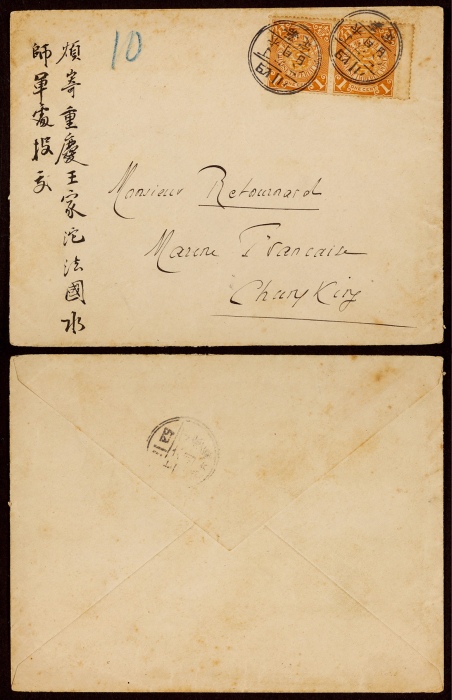 10
煩寄重慶王家沱法國水
師軍處投交
Monsieur Retournard
Marine Francaise
Chung King
ONE CENT
1
1